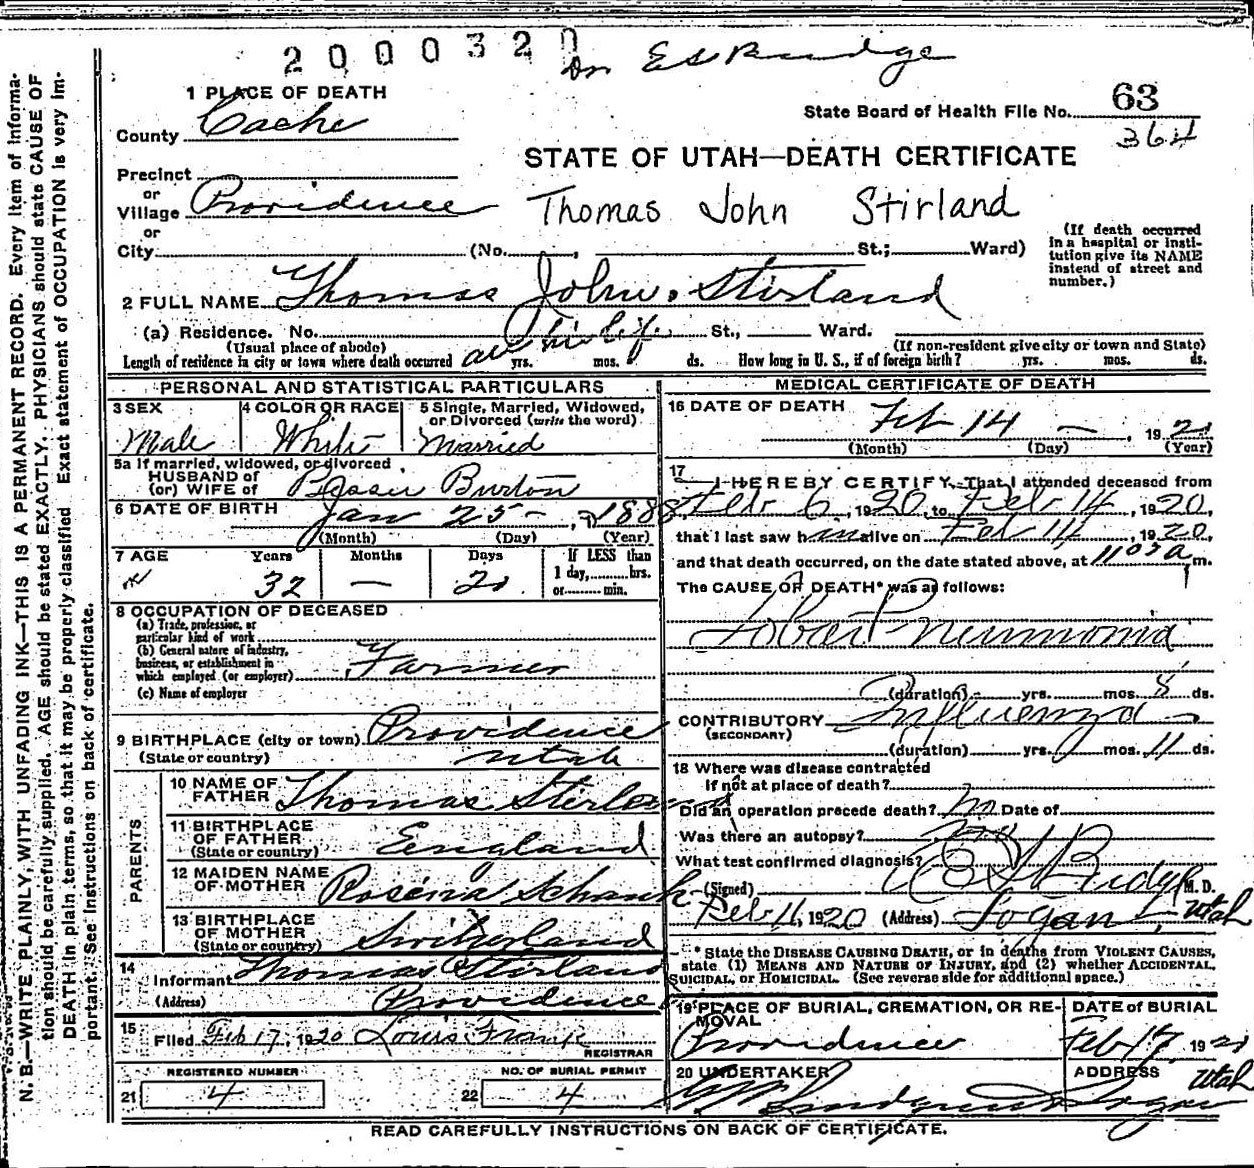 2000320
Dr E S Budge
1 PLACE OF DEATH
County Cache
State Board of Health File No. 63
364
STATE OF UTAH—DEATH CERTIFICATE
Precinct
or
Village Providence
Thomas John Stirland
or
City (No. , St.; Ward)
(If death occurred in a hospital or institution give its NAME instead of street and number.)
2 FULL NAME Thomas John Stirland
(a) Residence. No. St., Ward.
(Usual place of abode)
(If non-resident give city or town and State)
Length of residence in city or town where death occurred all his life yrs. mos. ds. How long in U. S., if of foreign birth? yrs. mos. ds.
PERSONAL AND STATISTICAL PARTICULARS
3 SEX
Male
4 COLOR OR RACE
White
5 Single, Married, Widowed, or Divorced (write the word)
Married
5a If married, widowed, or divorced
HUSBAND of
(or) WIFE of Burton
6 DATE OF BIRTH Jan 25 — , 1888
(Month) (Day) (Year)
7 AGE Years Months Days If LESS than
32 — 20 1 day, hrs.
or min.
8 OCCUPATION OF DECEASED
(a) Trade, profession, or particular kind of work
(b) General nature of industry, business, or establishment in which employed (or employer) Farmer
(c) Name of employer
9 BIRTHPLACE (city or town) Providence
(State or country) Utah
PARENTS
10 NAME OF FATHER Thomas Stirland
11 BIRTHPLACE OF FATHER (State or country) England
12 MAIDEN NAME OF MOTHER Rosena Schank
13 BIRTHPLACE OF MOTHER (State or country) Switzerland
14 Informant Thomas Stirland
(Address) Providence
15 Filed Feb 17, 1920 Louis Frank
REGISTRAR
REGISTERED NUMBER
21 4
NO. OF BURIAL PERMIT
22 4
MEDICAL CERTIFICATE OF DEATH
16 DATE OF DEATH Feb 14 — , 1920
(Month) (Day) (Year)
17 I HEREBY CERTIFY, That I attended deceased from
Feb 6, 1920, to Feb 14, 1920,
that I last saw him alive on Feb 14, 1920,
and that death occurred, on the date stated above, at 11 05 a. m.
The CAUSE OF DEATH* was as follows:
Lobar Pneumonia
(duration) yrs. mos. 8 ds.
CONTRIBUTORY Influenza
(SECONDARY)
(duration) yrs. mos. 11 ds.
18 Where was disease contracted
If not at place of death?
Did an operation precede death? no Date of
Was there an autopsy? no
What test confirmed diagnosis?
(Signed) E S Budge M. D.
Feb 16, 1920 (Address) Logan, Utah
* State the DISEASE CAUSING DEATH, or in deaths from VIOLENT CAUSES,
state (1) MEANS AND NATURE OF INJURY, and (2) whether ACCIDENTAL,
SUICIDAL, or HOMICIDAL. (See reverse side for additional space.)
19 PLACE OF BURIAL, CREMATION, OR REMOVAL
Providence
DATE OF BURIAL
Feb 17, 1920
20 UNDERTAKER
ADDRESS
Logan Utah
READ CAREFULLY INSTRUCTIONS ON BACK OF CERTIFICATE.
N. B.—WRITE PLAINLY, WITH UNFADING INK—THIS IS A PERMANENT RECORD. Every item of information should be carefully supplied. AGE should be stated EXACTLY. PHYSICIANS should state CAUSE OF
DEATH in plain terms, so that it may be properly classified. Exact statement of OCCUPATION is very important. See instructions on back of certificate.